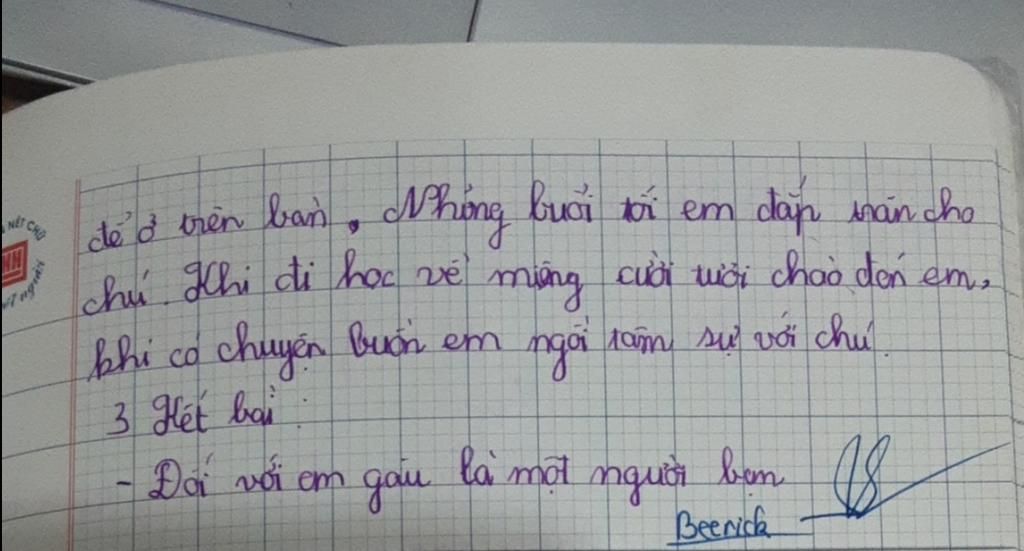 để ở trên bàn, Những buổi tối em đắp mān cho
chú. Khi đi học về miệng cười tười chào đến em,
khi có chuyện buồn em ngồi tâm sự với chú.
3 Kết bài:
- Đối với em gấu là một người bạn
Beerick
NÉT CHỮ